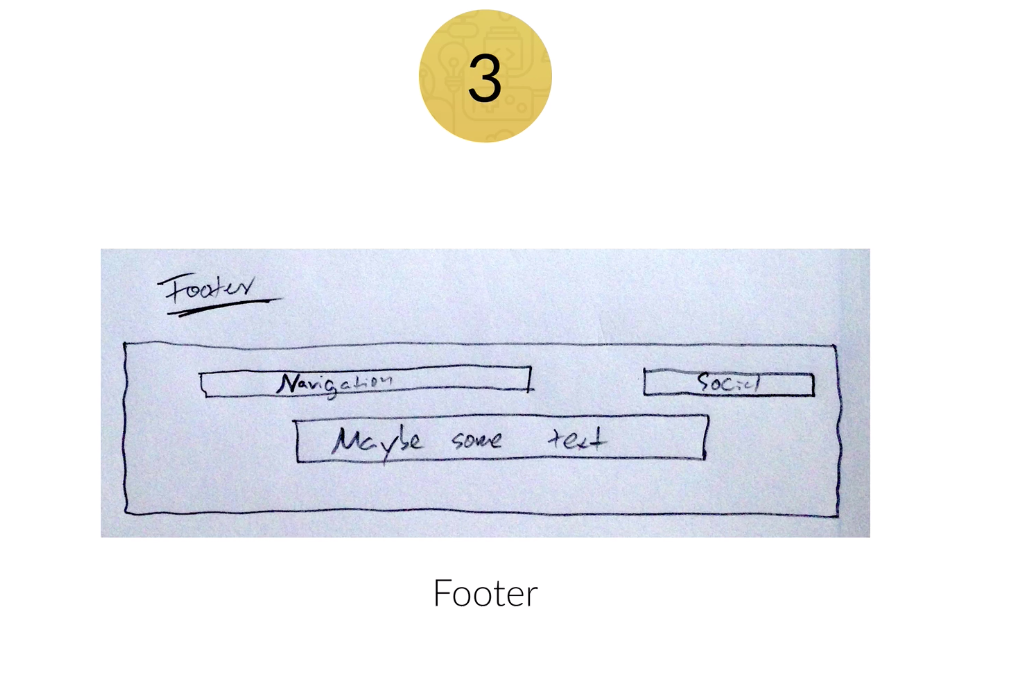 3
Footer
Navigation Social
Maybe some text
Footer